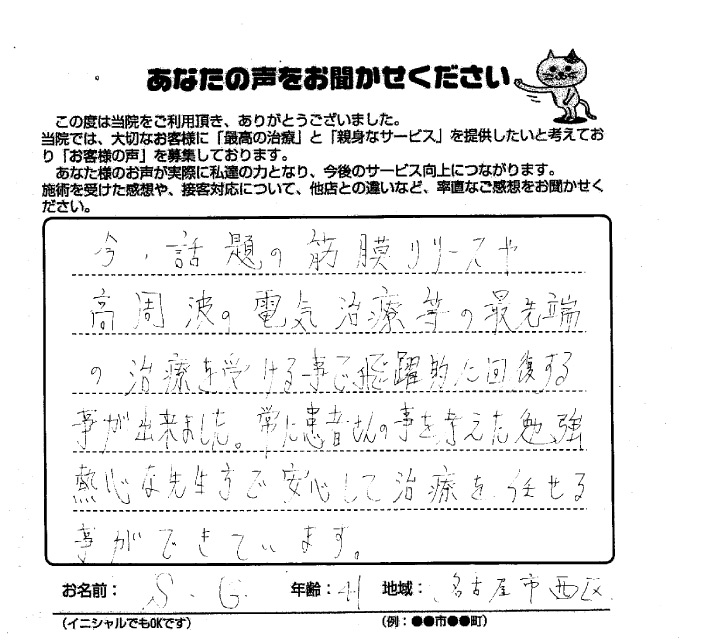 あなたの声をお聞かせください
この度は当院をご利用頂き、ありがとうございました。
当院では、大切なお客様に「最高の治療」と「親身なサービス」を提供したいと考えてお
り「お客様の声」を募集しております。
あなた様のお声が実際に私達の力となり、今後のサービス向上につながります。
施術を受けた感想や、接客対応について、他店との違いなど、率直なご感想をお聞かせく
ださい。
今、話題の筋膜リリースや
高周波の電気治療等の最先端
の治療を受ける事で飛躍的に回復する
事が出来ました。常に患者さんの事を考えた勉強
熱心な先生方で安心して治療を任せる
事ができています。
お名前： S.G 年齢：41 地域：名古屋市西区
（イニシャルでもOKです） （例：●●市●●町）